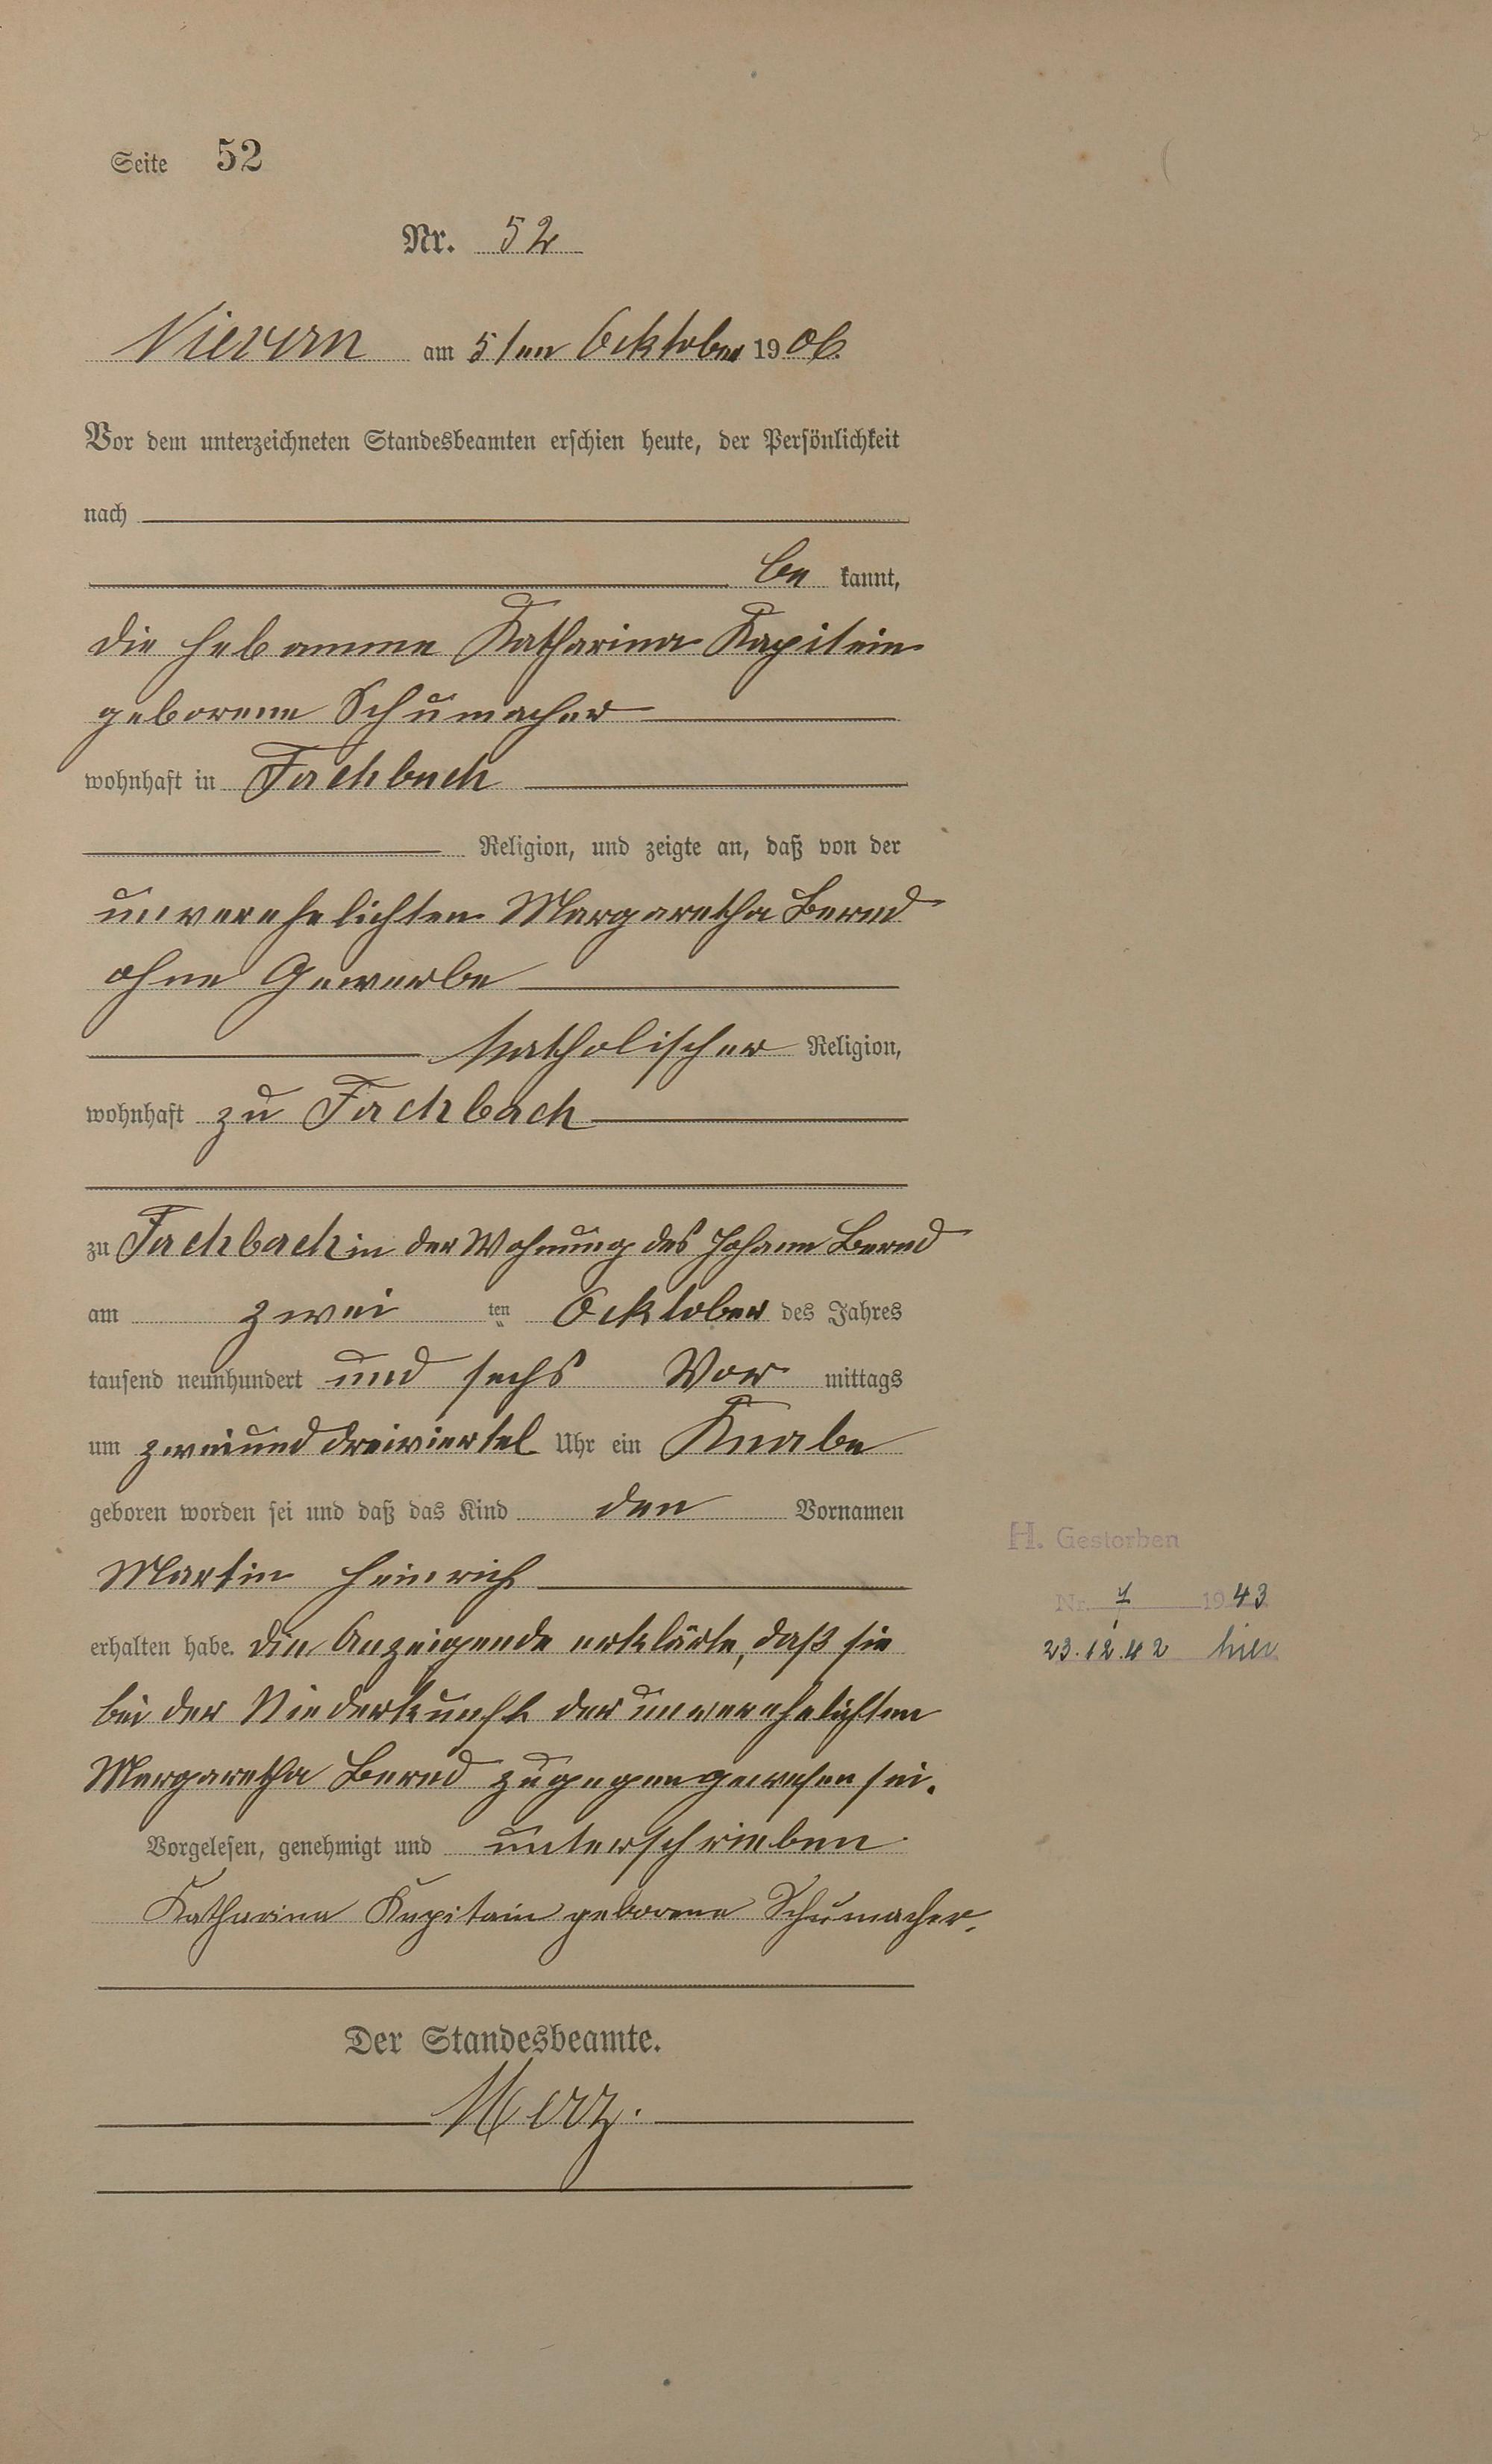 Seite 52
Nr. 52
Nievern am 5ten Ocktober 1906.
Vor dem unterzeichneten Standesbeamten erschien heute, der Persönlichkeit
nach
be kannt,
die Hebamme Katharina Kapitein
geborene Schumacher
wohnhaft in Fachbach
Religion, und zeigte an, daß von der
unverehelichten Margaretha Bernd
ohne Gewerbe
katholischer Religion,
wohnhaft zu Fachbach
zu Fachbach in der Wohnung des Johann Bernd
am zwei ten Ocktober des Jahres
tausend neunhundert und sechs Vor mittags
um zweiund dreiviertel Uhr ein Knabe
geboren worden sei und daß das Kind den Vornamen
Martin Heinrich
H. Gestorben
Nr. 1 1943
23.12.42 hier
erhalten habe. Die Anzeigende erklärte, daß sie
bei der Niederkunft der unverehelichten
Margaretha Bernd zugegen gewesen sei.
Vorgelesen, genehmigt und unterschrieben
Katharina Kapitain geborene Schumacher.
Der Standesbeamte.
Merz.